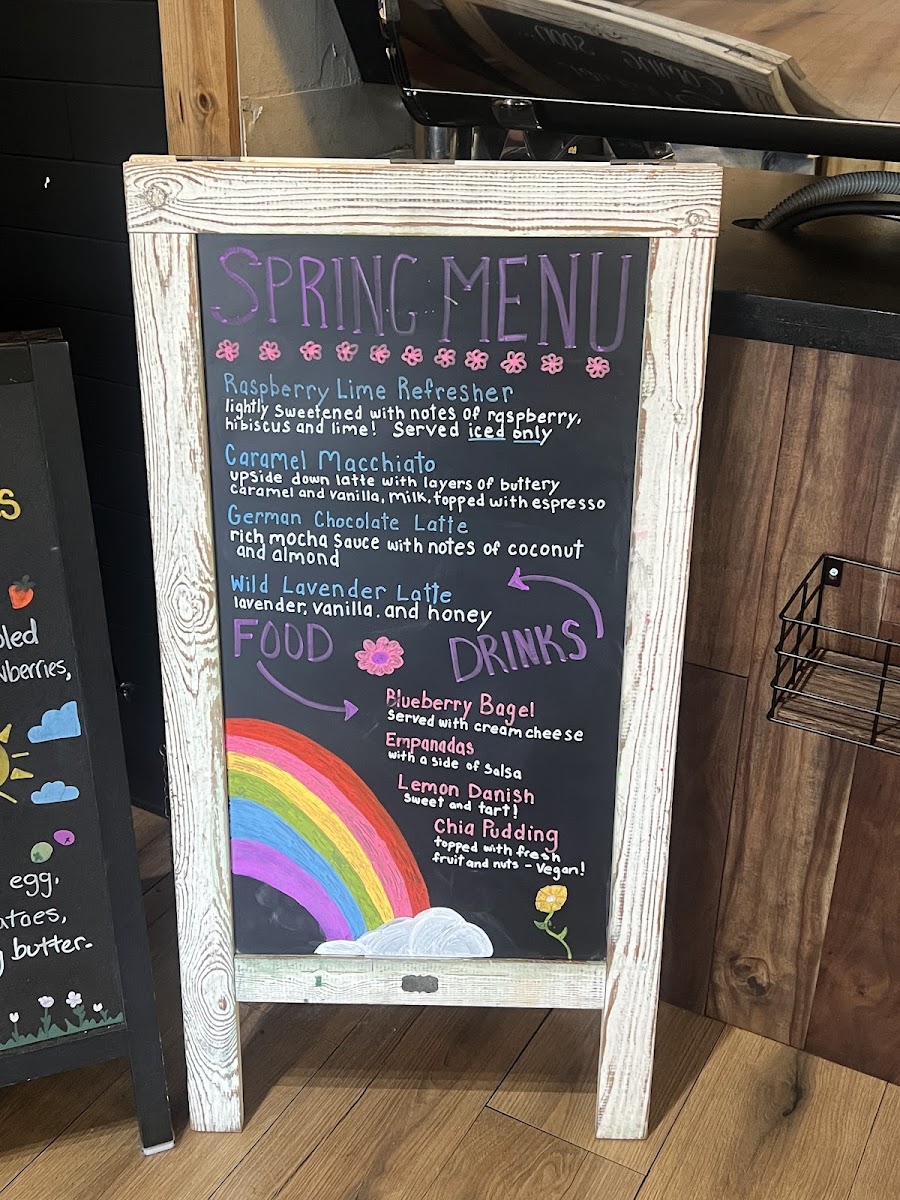 SPRING MENU
Raspberry Lime Refresher
lightly sweetened with notes of raspberry,
hibiscus and lime! Served iced only
Caramel Macchiato
upside down latte with layers of buttery
caramel and vanilla, milk, topped with espresso
German Chocolate Latte
rich mocha sauce with notes of coconut
and almond
Wild Lavender Latte
lavender, vanilla, and honey
FOOD
DRINKS
Blueberry Bagel
served with cream cheese
Empanadas
with a side of salsa
Lemon Danish
sweet and tart!
Chia Pudding
topped with fresh
fruit and nuts - vegan!
egg,
butter-